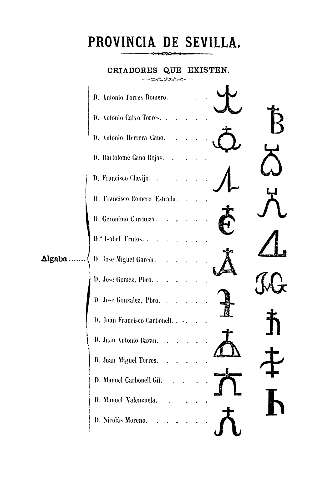 PROVINCIA DE SEVILLA.
CRIADORES QUE EXISTEN.
D. Antonio Torres Romero.
D. Antonio Calvo Torres.
D. Antonio Herrera Cano.
D. Bartolome Cano Rojas.
D. Francisco Clavijo
D. Francisco Romero Estrada
D. Geronimo Carranza
D.ª Isabel
Algaba
D. José Miguel Garcia
D. José Gomez, Pbro.
D. José Gonzalez, Pbro.
D. Juan Francisco Carbonell.
D. Juan Antonio Bazan.
D. Juan Miguel Torres.
D. Manuel Carbonell Gil
D. Manuel Valenzuela.
D. Nicolás Moreno.